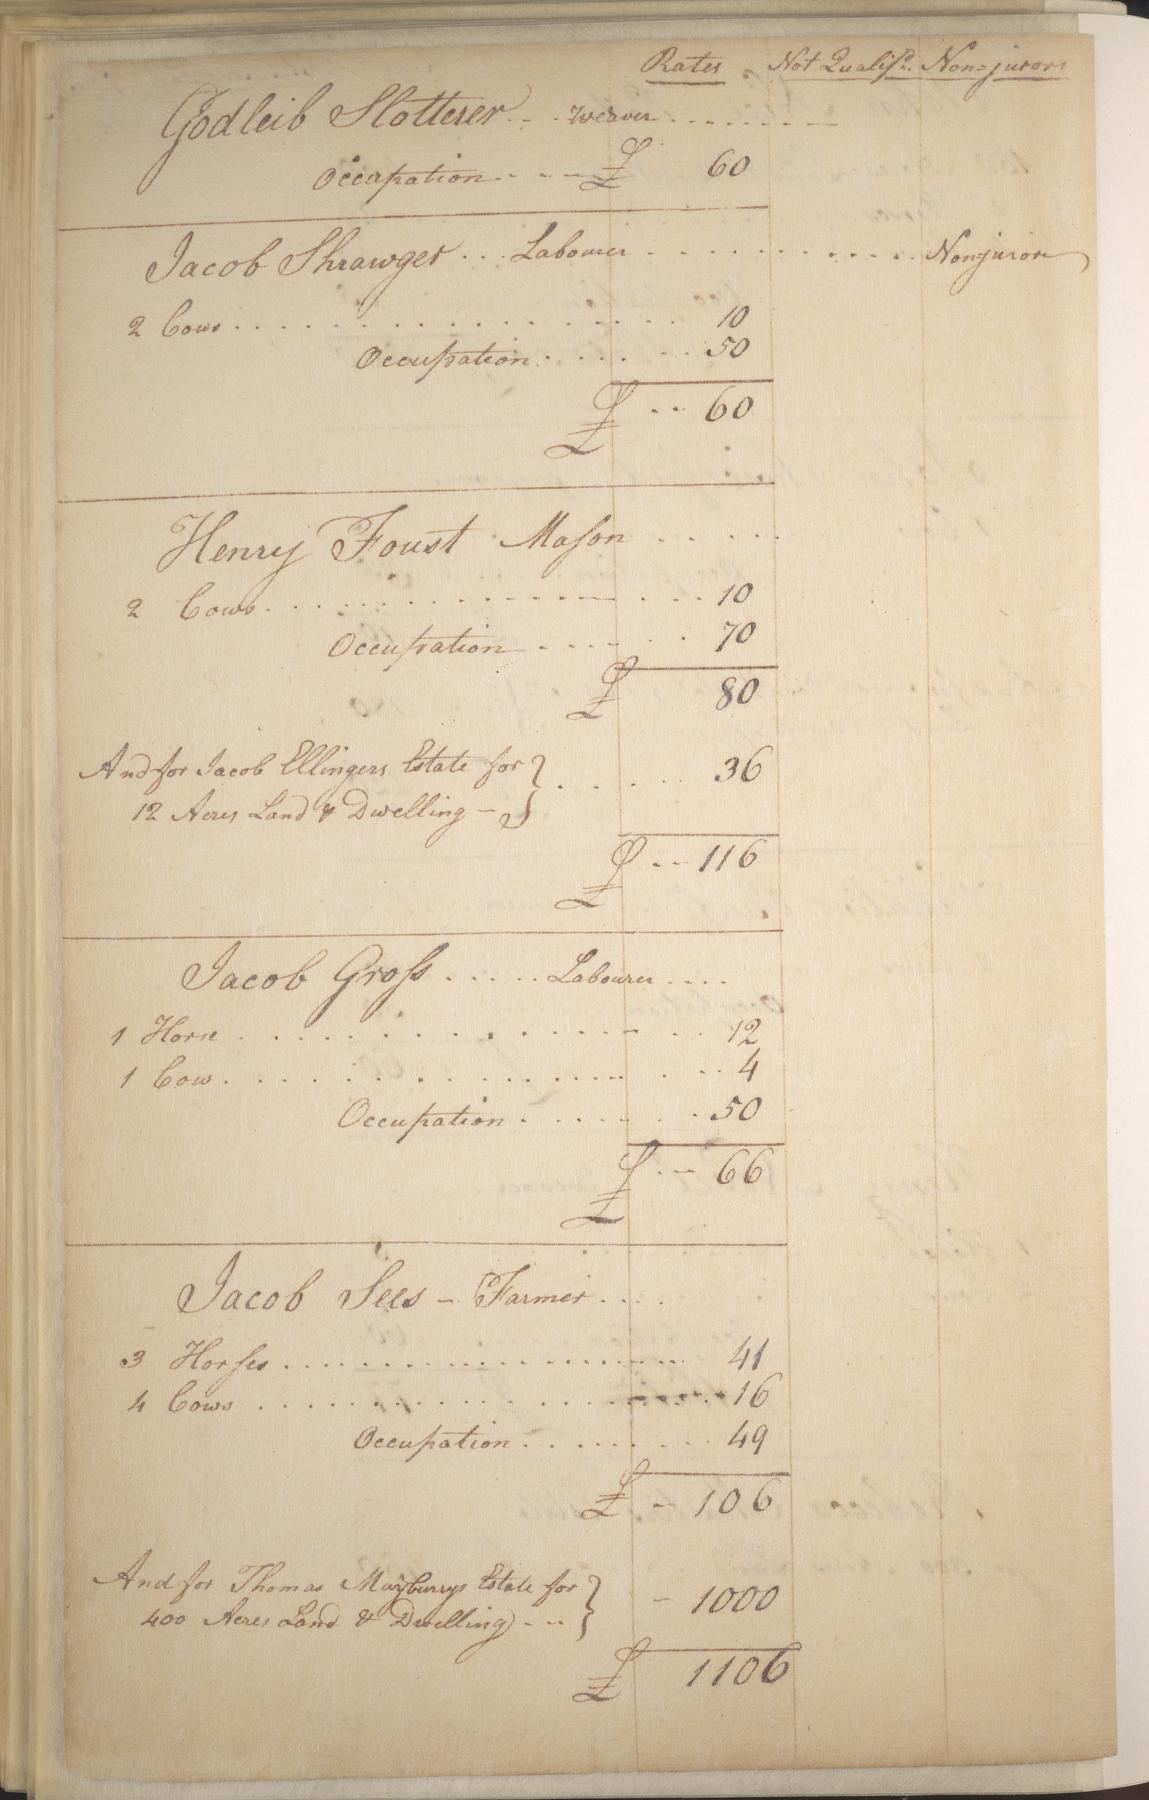 Rates Not Qualifd. Non=jurors
Godleib Slotterer - - - Weaver - - - - - - - -
Occupation - - - - £ 60
Jacob Shrawger - - - Labourer - - - - - - - - - - - Nonjuror
2 Cows - - - - - - - - - - - - - - - 10
Occupation - - - - - - 50
£ - - 60
Henry Foust Mason - - - - -
2 Cows - - - - - - - - - - - - - - - 10
Occupation - - - - - 70
£ 80
And for Jacob Ellingers Estate for } - - - - - 36
12 Acres Land & Dwelling -
£ - - 116
Jacob Gross - - - - - Labourer - - - -
1 Horse - - - - - - - - - - - - - - 12
1 Cow - - - - - - - - - - - - - - - 4
Occupation - - - - - - 50
£ - - 66
Jacob Sees - Farmer - - - -
3 Horses - - - - - - - - - - - - - - - 41
4 Cows - - - - - - - - - - - - - - - 16
Occupation - - - - - - - - 49
£ - 106
And for Thomas Mayburrys Estate for } - 1000
400 Acres Land & Dwelling - - -
£ 1106